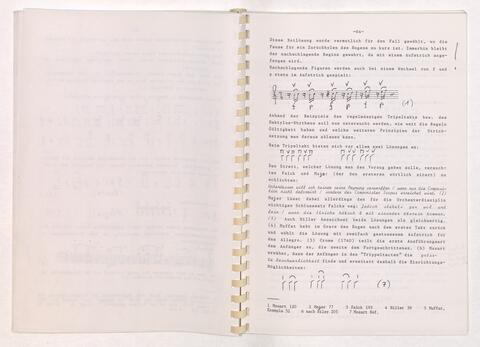 -64-
Diese Notlösung wurde vermutlich für den Fall gewählt, wo die
Pause für ein Zurückholen des Bogens zu kurz ist. Immerhin bleibt
der nachschlagende Beginn gewahrt, da mit einem Aufstrich ange-
fangen wird.
Nachschlagende Figuren werden auch bei einem Wechsel von f und
p stets im Aufstrich gespielt:
f p f p (1)
Anhand der Beispiele des regelmässigen Tripeltakts bzw. des
Daktylus-Rhythmus soll nun untersucht werden, wie weit die Regeln
Gültigkeit haben und welche weiteren Prinzipien der Strich-
setzung man daraus ableiten kann.
Beim Tripeltakt bieten sich vor allem zwei Lösungen an:
Den Streit, welcher Lösung man den Vorzug geben solle, versuch-
ten Falck und (der den ersteren wörtlich zitiert) zu
schlichten:
(2)
lässt dabei allerdings den für die Orchesterdisziplin
wichtigen Schlusssatz Falcks weg:
(3) Auch Hiller bezeichnet beide Lösungen als gleichwertig.
(4) Muffat hebt im Grave den Bogen nach dem ersten Takt zurück
und wählt die Lösung mit zweifach gestossenem Aufstrich für
den Allegro. (5) Crome (1740) teilt die erste Ausführungsart
dem Anfänger zu, die zweite dem Fortgeschrittenen. (6) Mozart
erwähnt, dass der Anfänger in den "Trippeltacten" die
finde und erweitert deshalb die Einrichtungs-
Möglichkeiten:
(7)
1 Mozart 120 3 Falck 193 4 Hiller 39 5 Muffat,
Exempla 51 7 Mozart